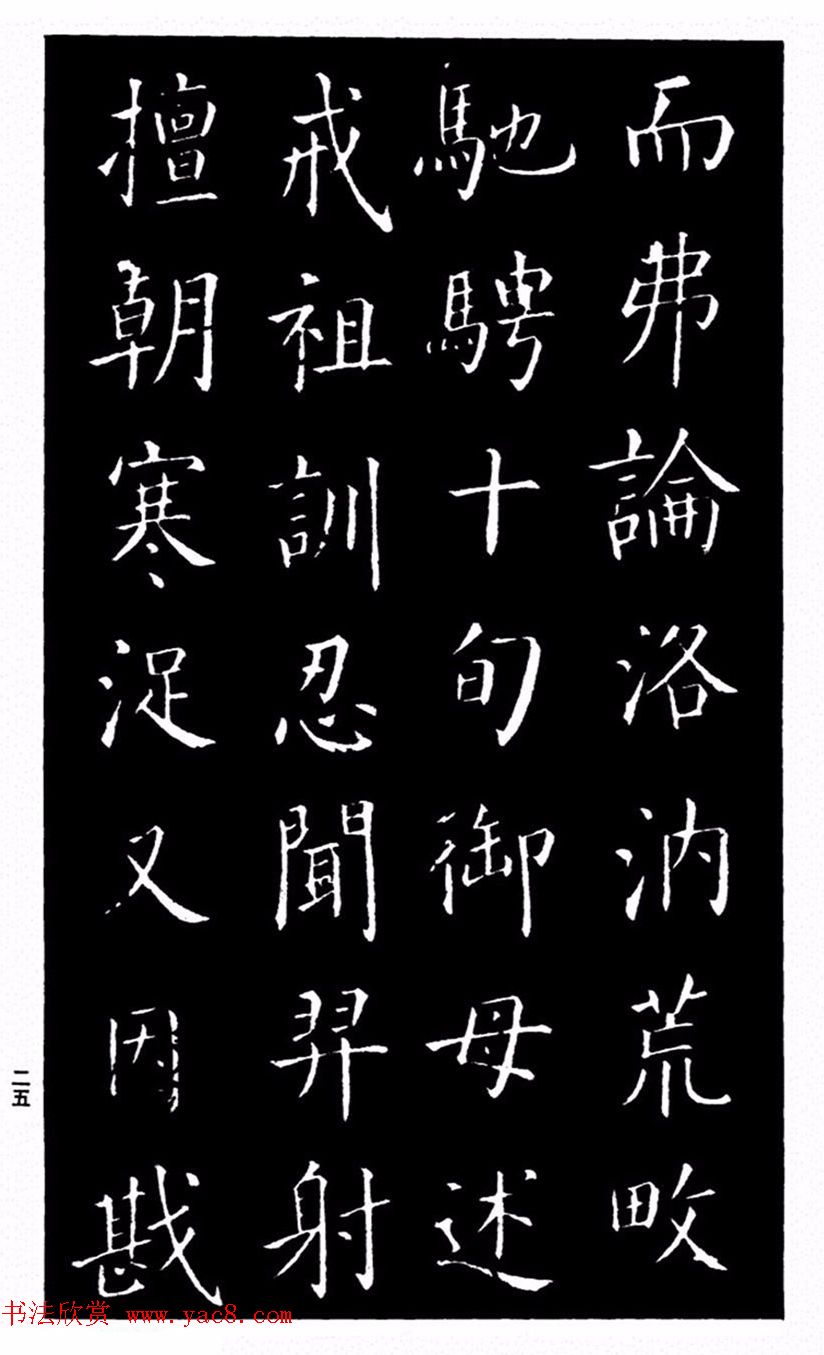 而弗論洛汭荒畋
馳騁十旬御母述
戒祖訓忍聞羿射
擅朝寒浞又因戡
二五
书法欣赏 www.yac8.com